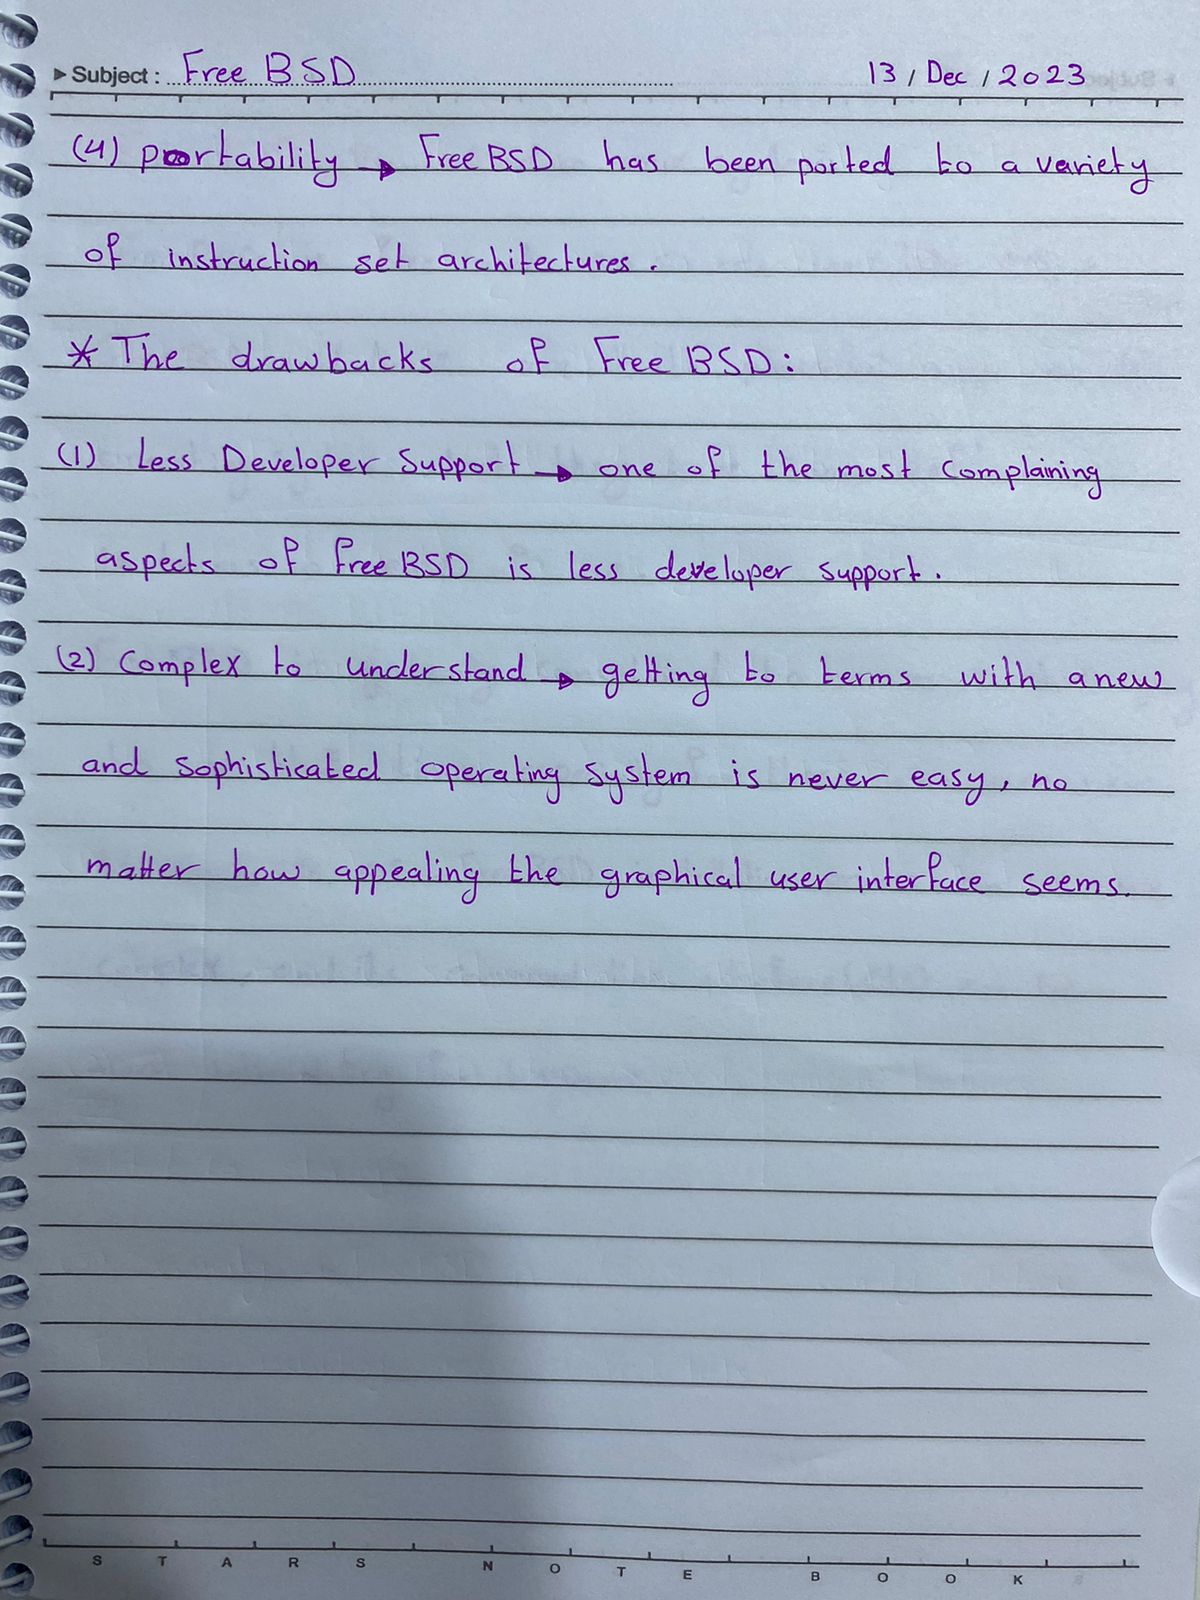 ▶ Subject : Free BSD 13 / Dec / 2023
(4) portability → Free BSD has been ported to a variety
of instruction set architectures.
* The drawbacks of Free BSD:
(1) Less Developer Support → one of the most Complaining
aspects of free BSD is less developer support.
(2) Complex to understand → getting to terms with a new
and sophisticated operating system is never easy, no
matter how appealing the graphical user interface seems.
STARS NOTE BOOK